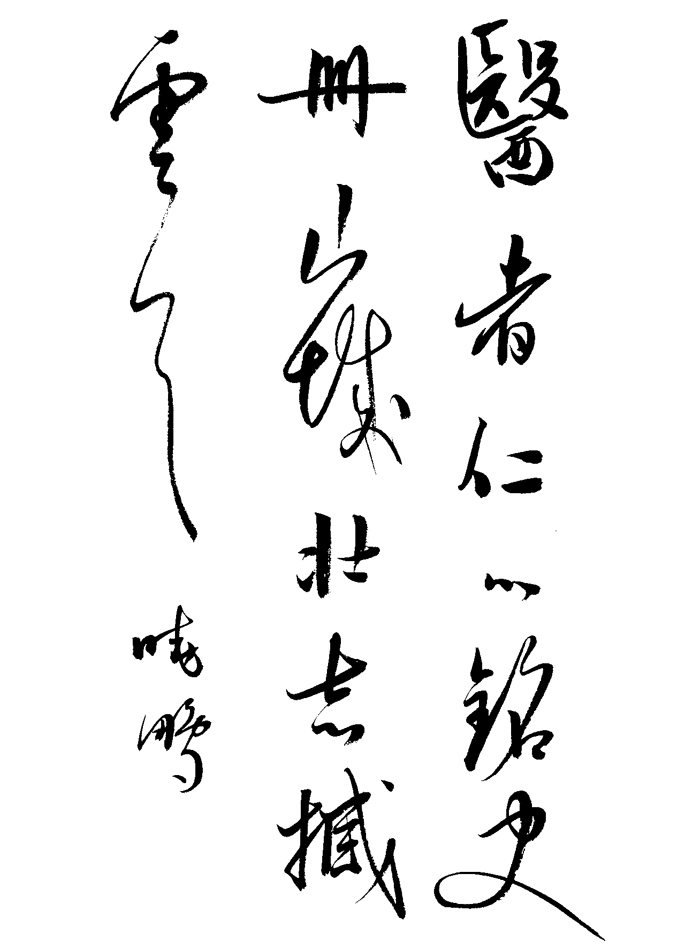 醫者仁心銘史
冊山城壯志撼
雲天
曉鵬